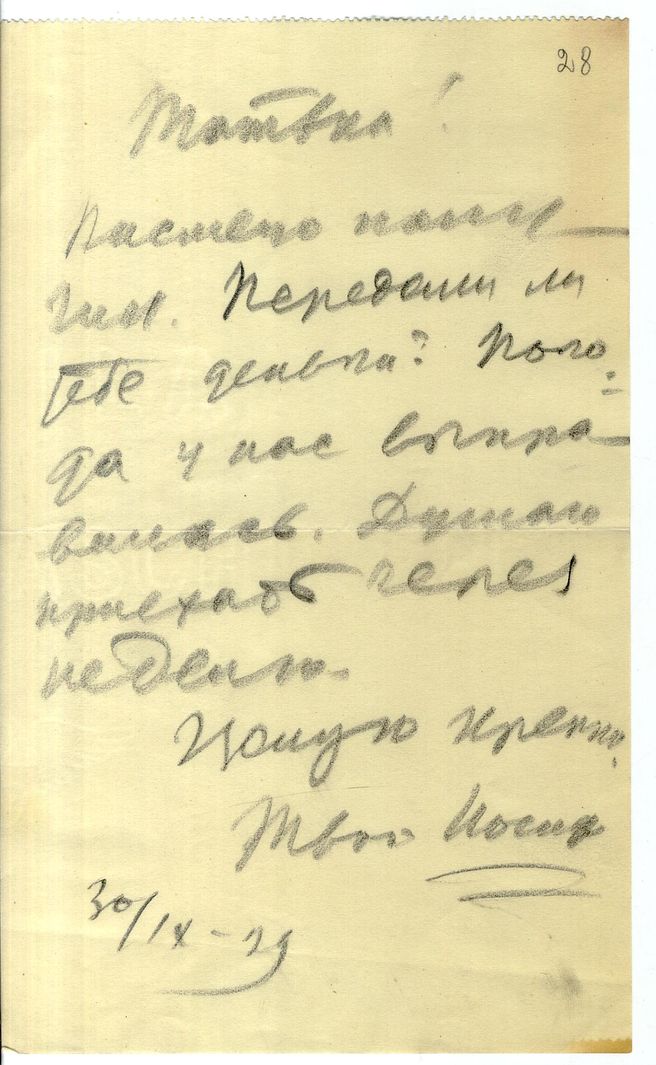 28
Татька!
Письмецо полу-
чил. Передали ли
тебе деньги? Пого-
да у нас выпра-
вилась. Думаю
приехать через
неделю.
Целую крепко.
Твой Иосиф
30/IX–29